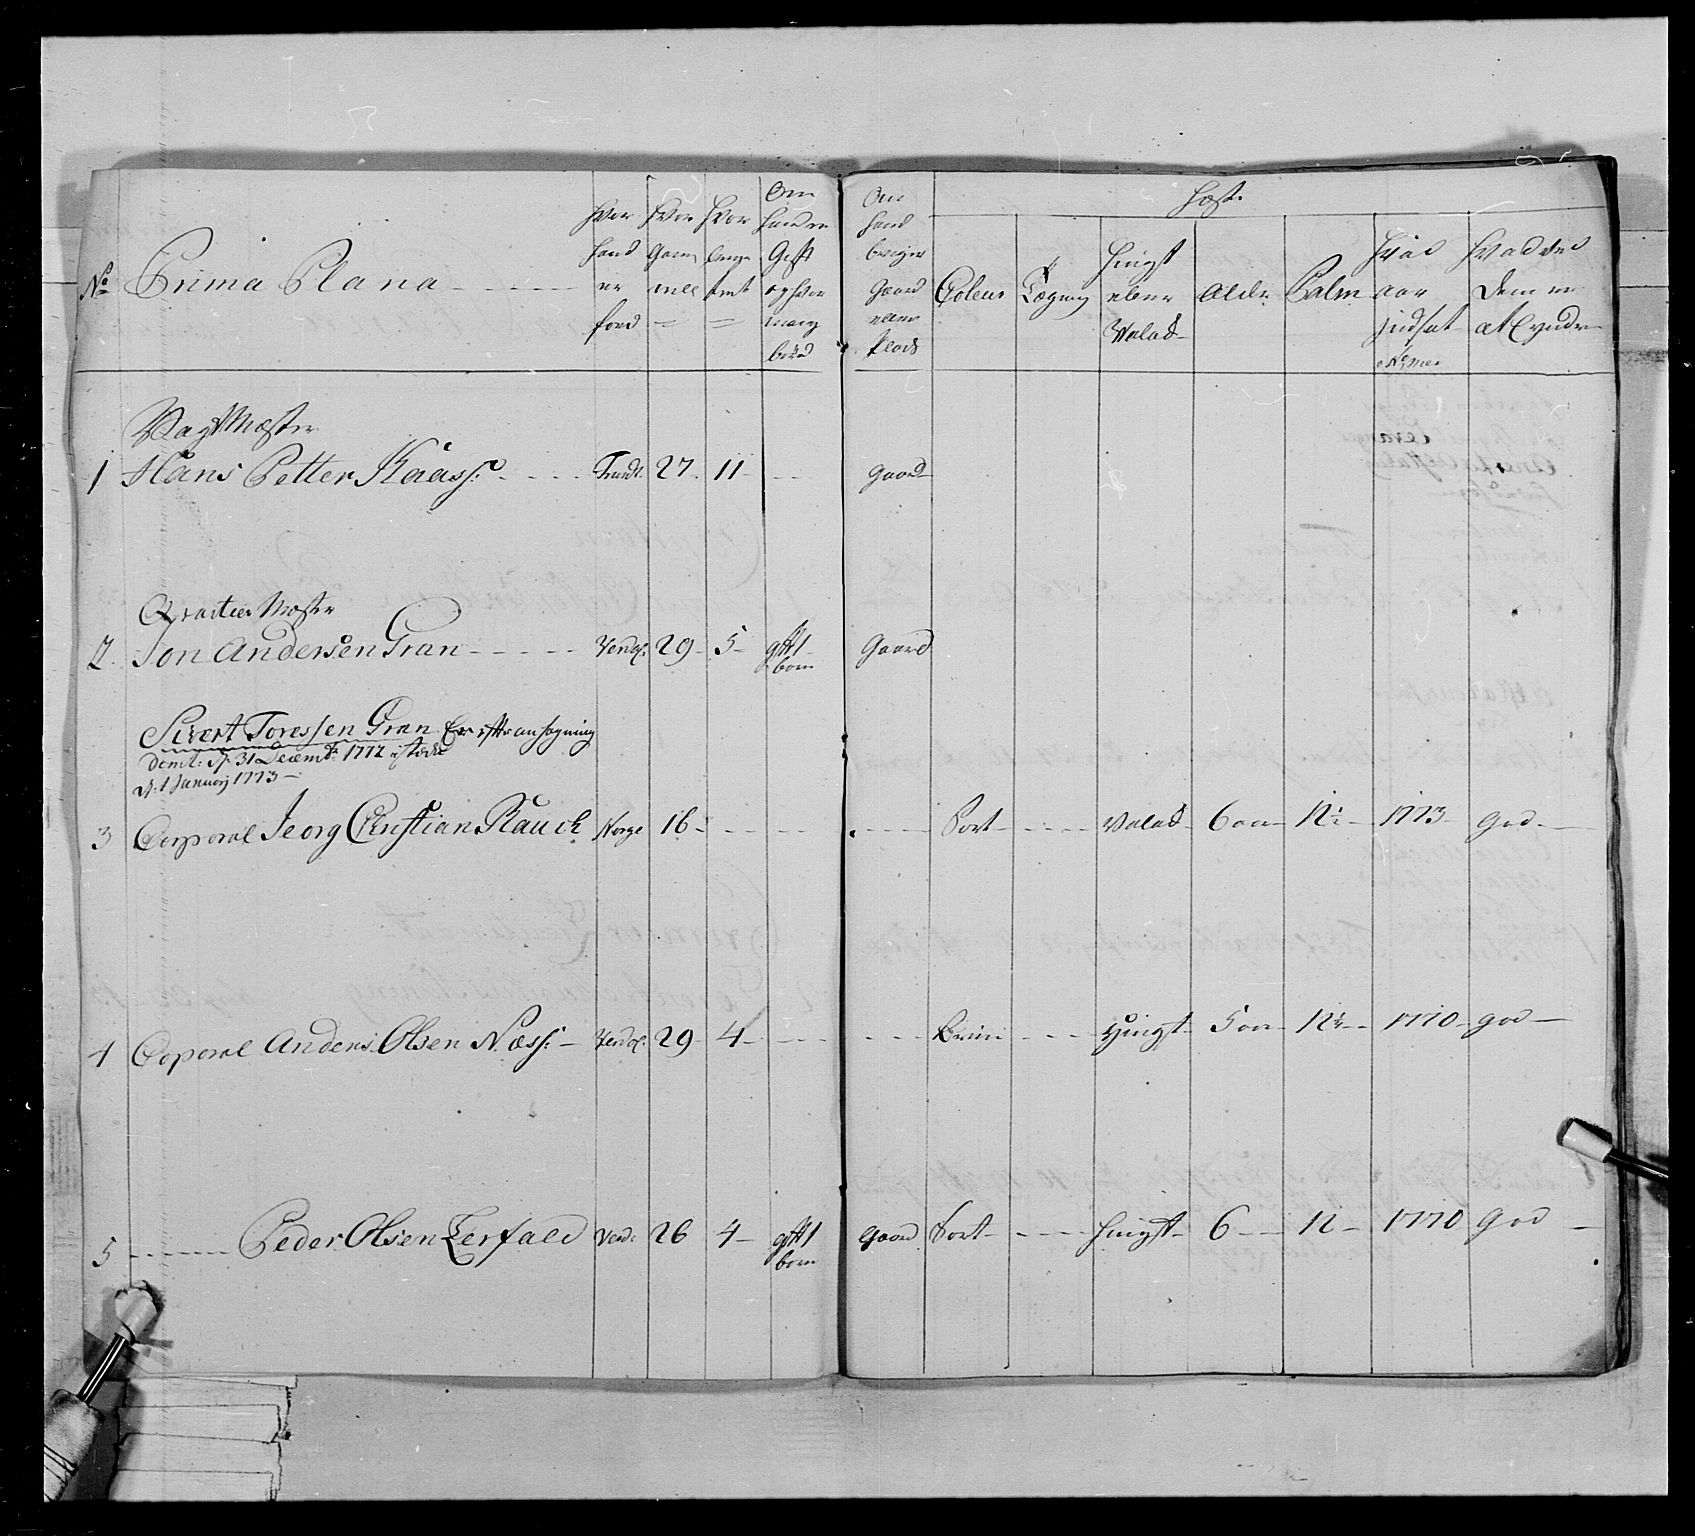 No Prima Plana
hvor hand er fød
hvor Gaml
hvor lenge tient
Om hand er Gift og hvor mang børn
Om hand beviger Gaard eller Plads
Heste
Coleur
Tægning
Hingst eller Valak
Alder
Palm
hvad aar indsat
Hvad ved dem er at Erindre
Vagt Mæster
1 Hans Petter Kaas: Trondt. 27 11 gaard
Qvarteer Mæster
2. Jon Andersen Gran Verdal: 29 5 gift 1 børn Gaard
Sivert Toressen Gran Er efter ansøgning
dimt: d. 31 Decembr: 1772 i stæde
d. 1 Januarj 1773
3 Corporal Jeorg Christian Rauch Norge 16 Sort Valak 6 aar 12½ 1773 god
4 Coporal Anders Olsen Næss: Verdal: 29 4 Brun Hingst 5 aar 12½ 1770 god
5 Peder Olsen Lerfald Verd: 26 4 gift 1 børn gaard Sort hingst 6 12 1770 God